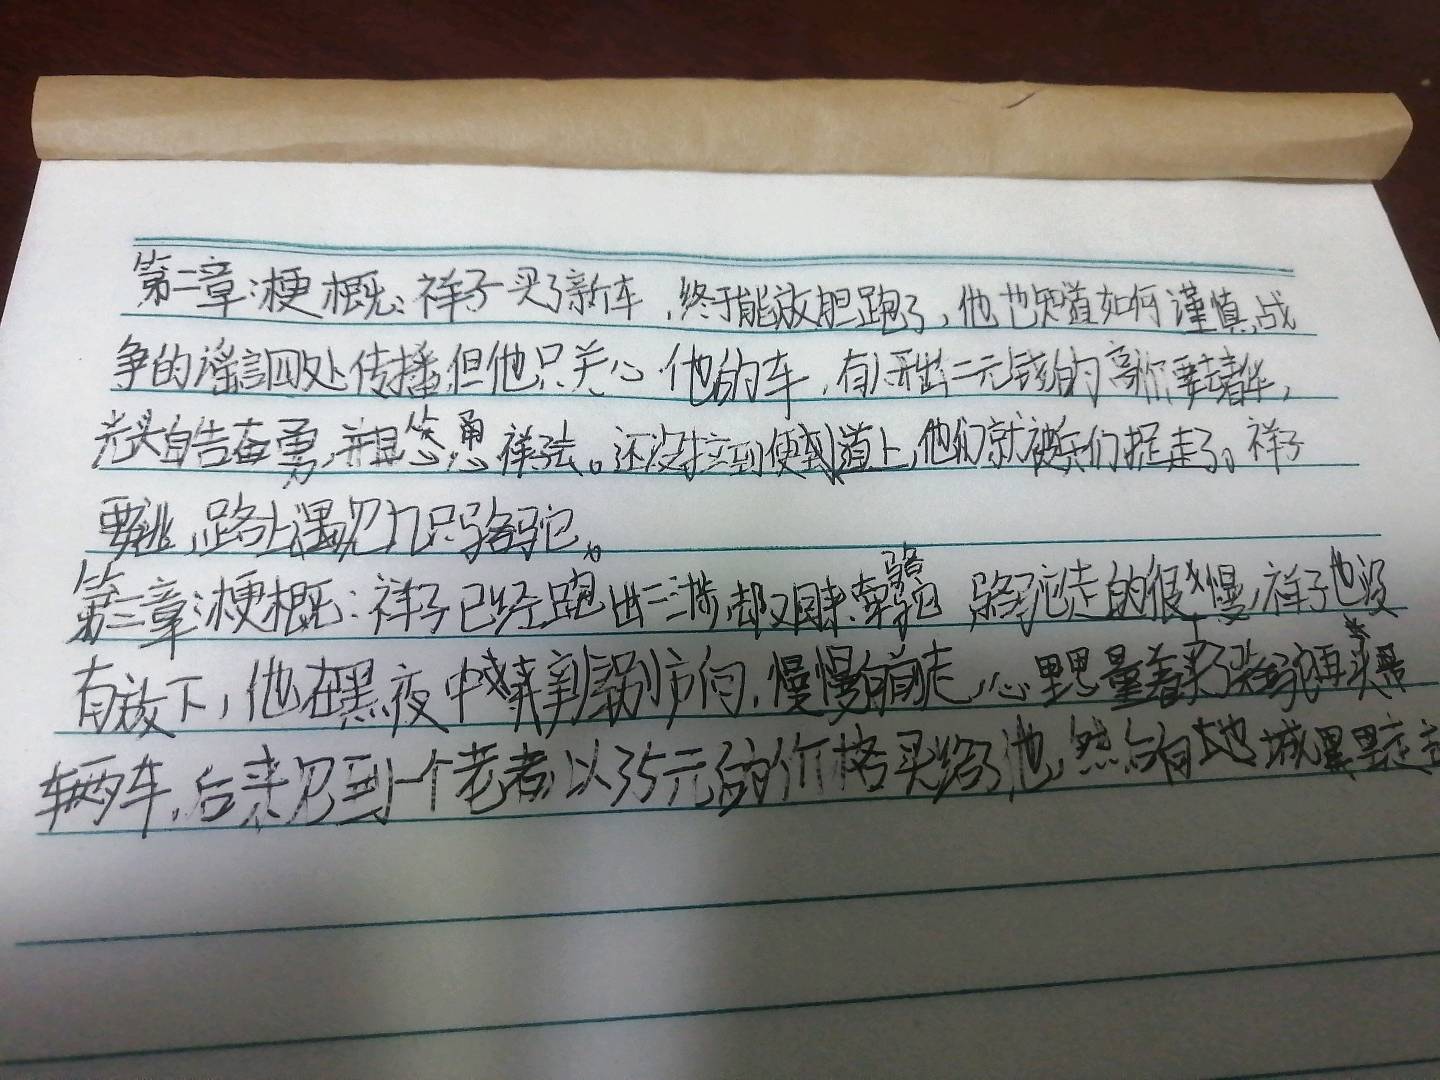 第二章:梗概:祥子买了新车,终于能放胆跑了,他也知道如何谨慎,战
争的谣言四处传播,但他只关心他的车,有人开出二元钱的高价要去清华,
光头自告奋勇,并且怂恿祥子去。还没拉到便到道上,他们就被兵们捉走了。祥子
要逃,路上遇见几只骆驼。
第三章:梗概:祥子已经跑出二三十步,却又回来牵骆驼 骆驼走的很慢,祥子也没
有放下,他在黑夜中 方向,慢慢向前走,心里思量着买了骆驼再买
辆车,后来见到一个老者,以35元的价格买给了他,然后向 城里走去